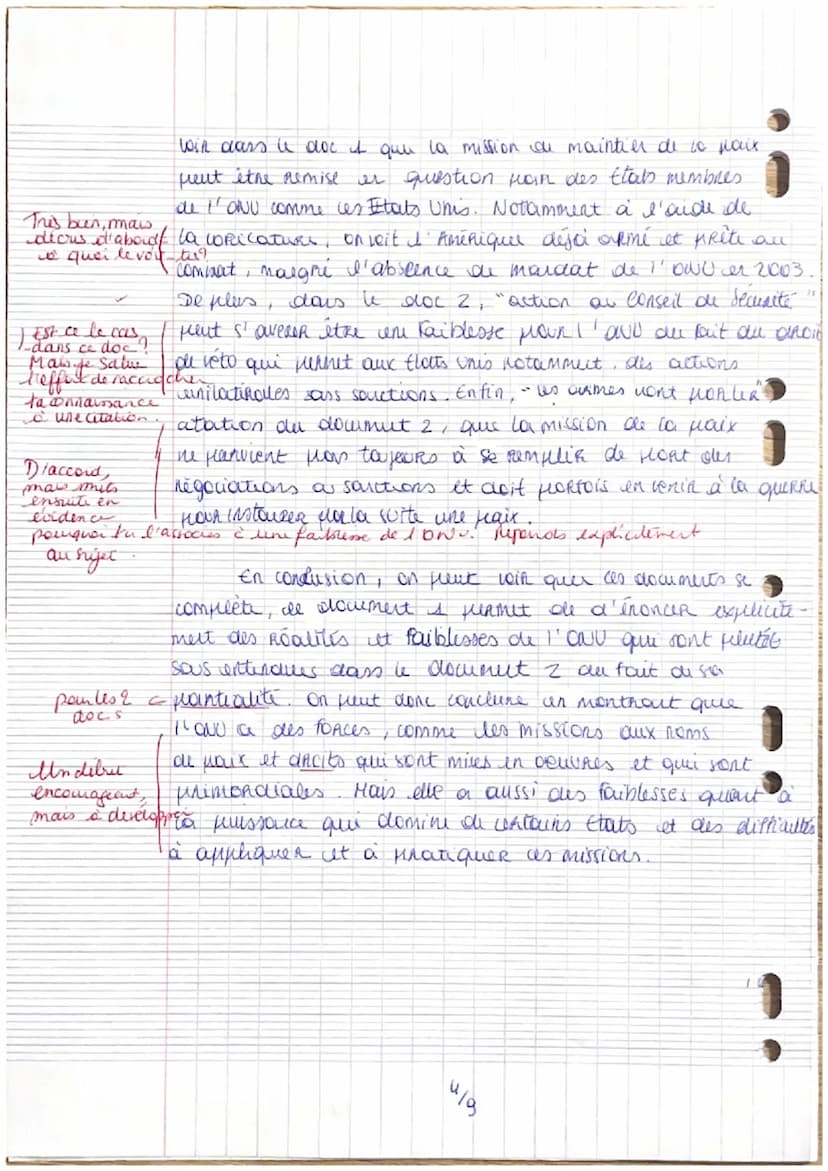 voir dans le doc 1 que la mission de maintien de la paix
peut être remise en question par des États membres
de l'ONU comme les Etats Unis. Notamment à l'aide de
Très bien, mais
décris d'abord
à quoi le vois-tu?
la caricature, on voit l'Amérique déjà armé et prête au
combat, malgré l'abscence de mandat de l'ONU en 2003.
De plus, dans le doc 2, "action au Conseil de Sécurité"
Est ce le cas
dans ce doc?
Mais je salue
l'effort de raccrocher
ta connaissance
à une citation.
peut s'averer être une faiblesse pour l'ONU du fait du droit
de véto qui permet aux Etats Unis notamment, des actions
unilatérales sans sanctions. Enfin, "les armes vont parler"
citation du document 2, que la mission de la paix
ne parvient pas toujours à se remplir de part des
D'accord,
mais mets
ensuite en
évidence
pourquoi tu l'associes à une faiblesse de l'ONU. Réponds explicitement
au sujet.
négociations ou sanctions et doit parfois en venir à la guerre
pour instaurer par la suite une paix.
En conclusion, on peut voir que ces documents se
complète, le document 1 permet de d'énoncer explicite-
ment des réalités et faiblesses de l'ONU qui sont plutôt
sous entendues dans le document 2 du fait de sa
pour les 2
docs
partialité. On peut donc conclure en montrant que
l'ONU a des forces, comme les missions aux noms
de paix et droits qui sont mises en oeuvres et qui sont
Un début
encourageant,
mais à développer
primordiales. Mais elle a aussi des faiblesses quant à
la puissance qui domine de certains Etats et des difficultés
à appliquer et à pratiquer ces missions.
4/9